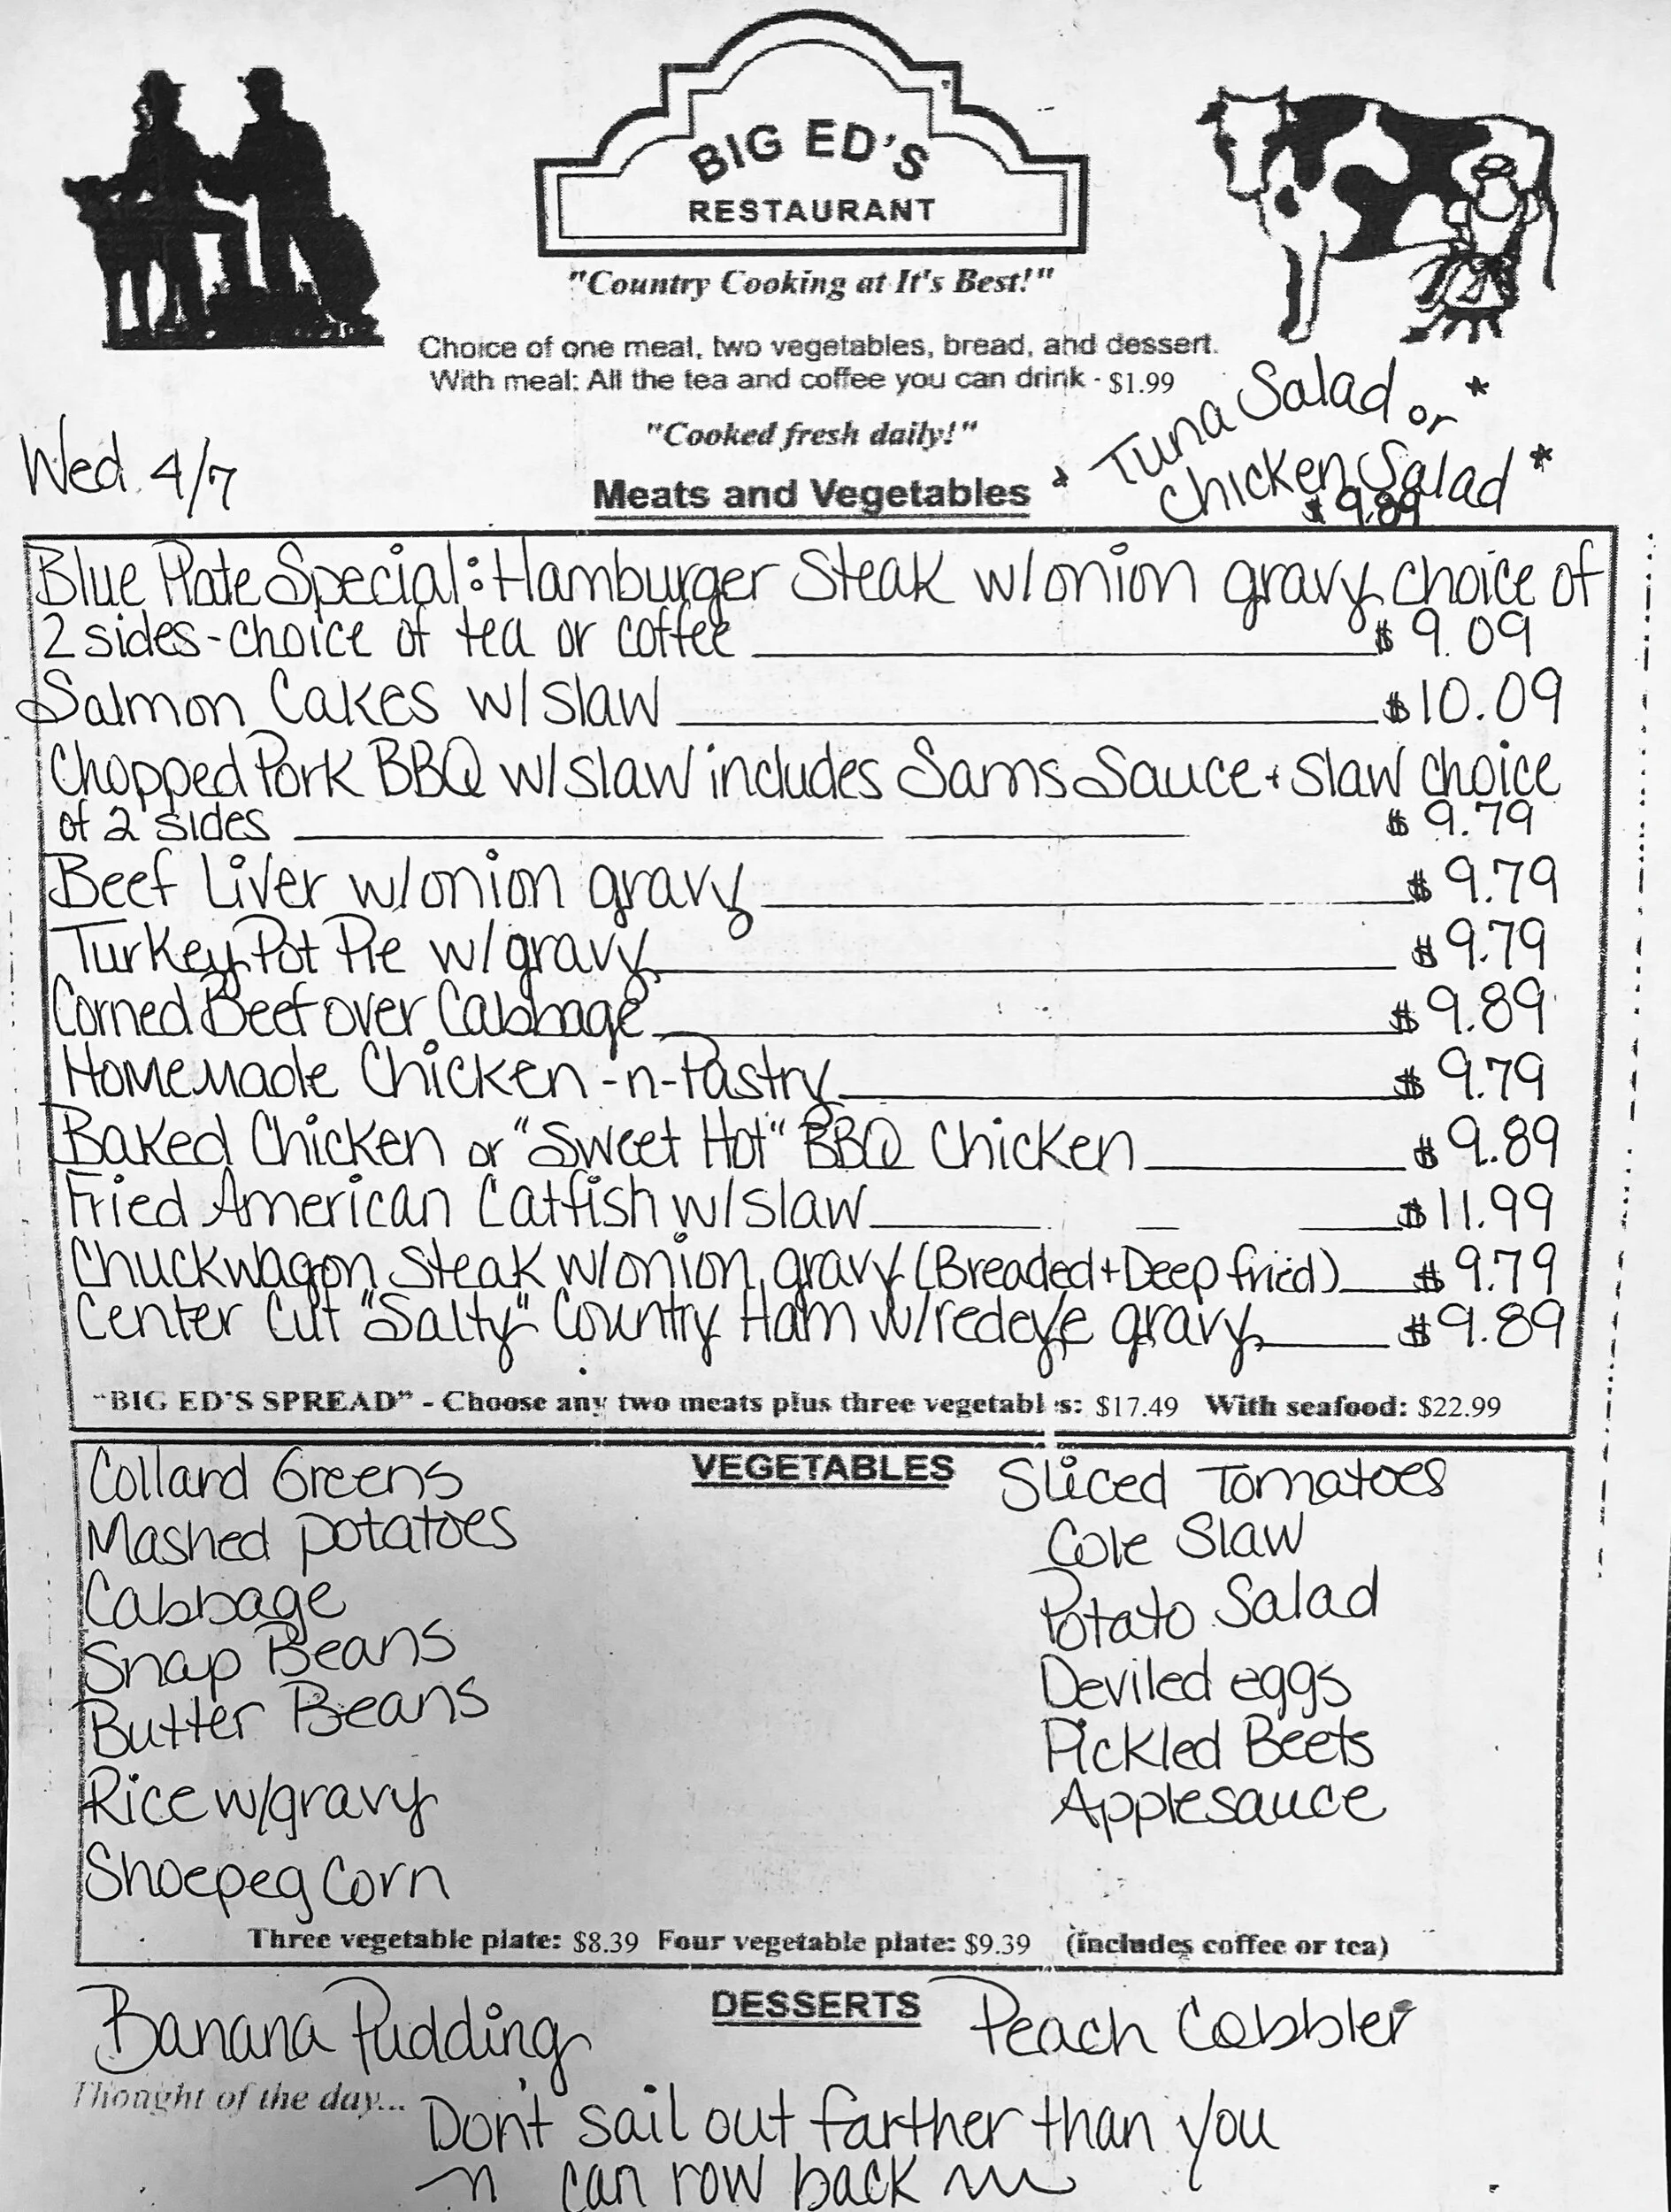 BIG ED'S
RESTAURANT
"Country Cooking at It's Best!"
Choice of one meal, two vegetables, bread, and dessert.
With meal: All the tea and coffee you can drink - $1.99
"Cooked fresh daily!"
Wed. 4/7
* Tuna Salad or *
Chicken Salad *
$9.89
Meats and Vegetables
Blue Plate Special: Hamburger Steak w/onion gravy choice of
2 sides-choice of tea or coffee $9.09
Salmon Cakes w/slaw $10.09
Chopped Pork BBQ w/slaw includes Sams Sauce + slaw choice
of 2 sides $9.79
Beef Liver w/onion gravy $9.79
Turkey Pot Pie w/gravy $9.79
Corned Beef over Cabbage $9.89
Homemade Chicken-n-Pastry $9.79
Baked Chicken or "Sweet Hot" BBQ Chicken $9.89
Fried American Catfish w/slaw $11.99
Chuckwagon Steak w/onion gravy (Breaded+Deep fried) $9.79
Center Cut "Salty" Country Ham w/redeye gravy $9.89
"BIG ED'S SPREAD" - Choose any two meats plus three vegetables: $17.49 With seafood: $22.99
VEGETABLES
Collard Greens
Mashed potatoes
Cabbage
Snap Beans
Butter Beans
Rice w/gravy
Shoepeg Corn
Sliced Tomatoes
Cole Slaw
Potato Salad
Deviled eggs
Pickled Beets
Applesauce
Three vegetable plate: $8.39 Four vegetable plate: $9.39 (includes coffee or tea)
DESSERTS
Banana Pudding
Peach Cobbler
Thought of the day...
Don't sail out farther than you
can row back